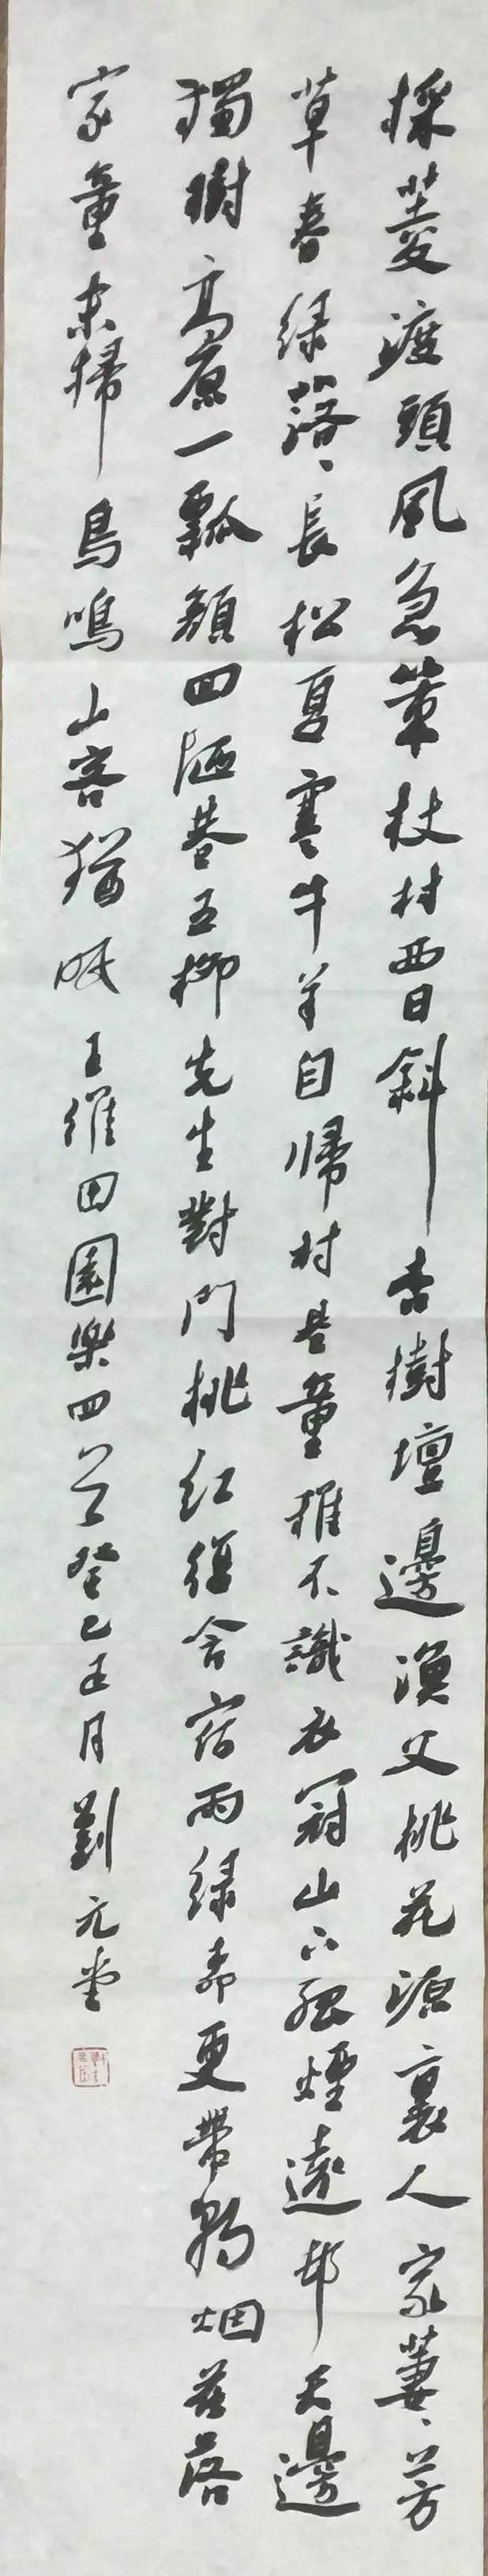 採菱渡頭風急策杖村西日斜杏樹壇邊漁父桃花源裏人家萋〻芳
草春綠落〻長松夏寒牛羊自歸村巷童稚不識衣冠山下孤煙遠邨天邊
獨樹高原一瓢顏回陋巷五柳先生對門桃紅復含宿雨綠更帶朝烟花落
家童未掃鳥鳴山客猶眠王維田園樂四首癸巳正月劉元堂